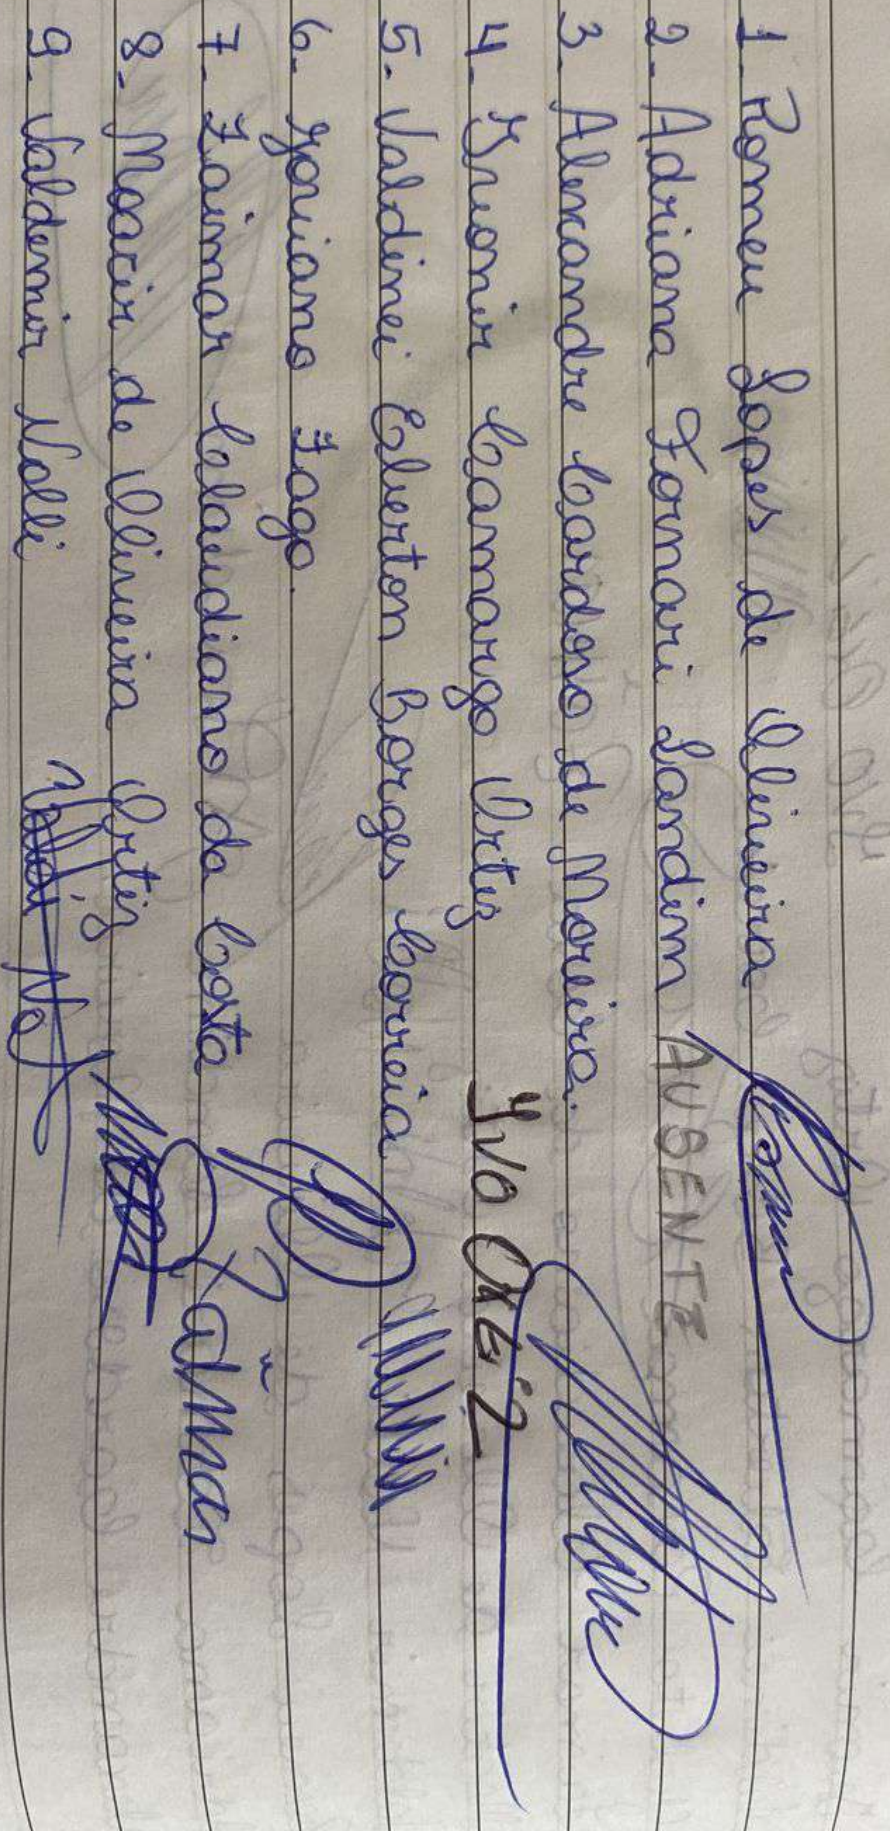 1. Romeu Lopes de Oliveira Romeu
2. Adriana Fornari Landim AUSENTE
3. Alexandre Cardoso de Moreira.
4. Ivonir Camargo Ortiz Ivo ORtiz
5. Valdinei Elverton Borges Correia
6. Joviano Iago.
7. Zaimar Claudiano da Costa Zaimar
8. Moacir de Oliveira Ortiz
9. Valdemir Nolli